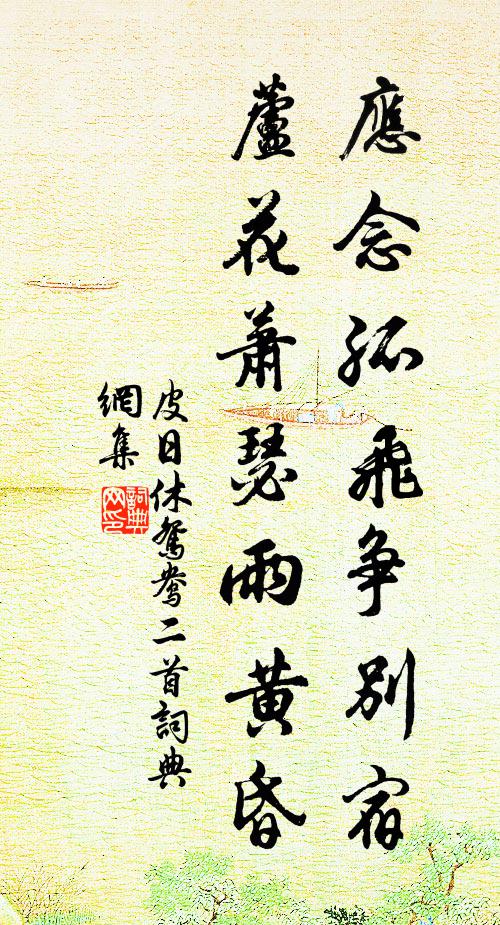 應念孤飛爭別宿
蘆花蕭瑟雨黃昏
皮日休鴛鴦二首詞典
網集
詞典网印